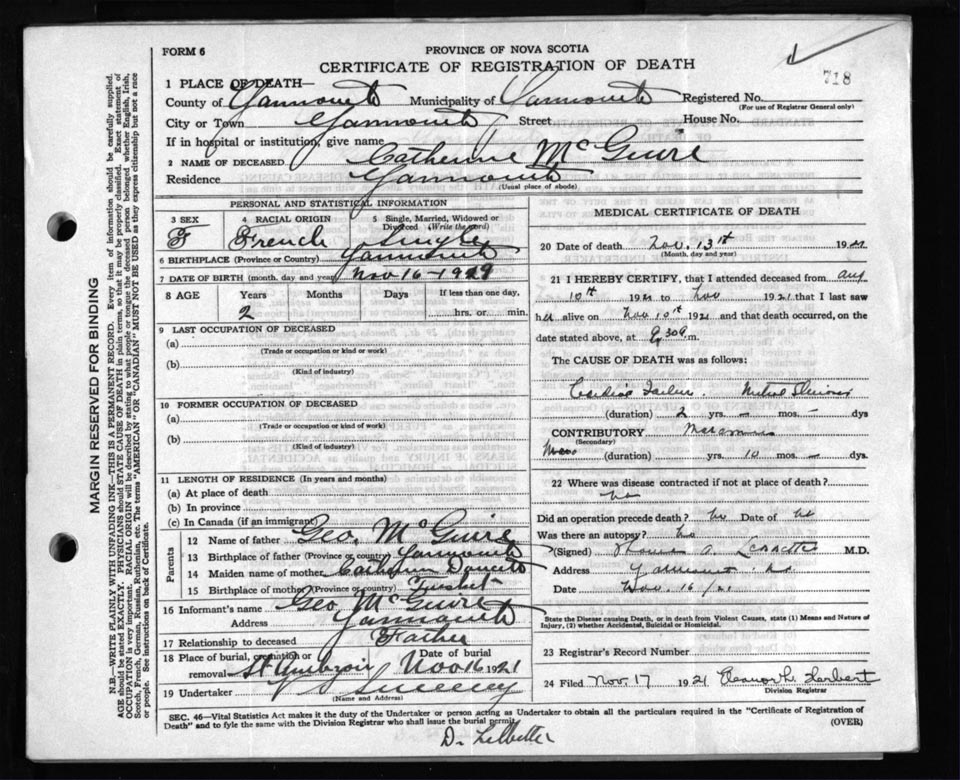 FORM 6
PROVINCE OF NOVA SCOTIA
CERTIFICATE OF REGISTRATION OF DEATH
718
1 PLACE OF DEATH—
County of Yarmouth Municipality of Yarmouth Registered No.
(For use of Registrar General only)
City or Town Yarmouth Street House No.
If in hospital or institution, give name
2 NAME OF DECEASED Catherine McGuire
Residence Yarmouth
(Usual place of abode)
PERSONAL AND STATISTICAL INFORMATION
3 SEX 4 RACIAL ORIGIN 5 Single, Married, Widowed or Divorced (Write the word)
F French Single
6 BIRTHPLACE (Province or Country) Yarmouth
7 DATE OF BIRTH (month, day and year) Nov 16-1919
8 AGE Years Months Days If less than one day,
2 hrs. or min.
9 LAST OCCUPATION OF DECEASED
(a)
(Trade or occupation or kind or work)
(b)
(Kind of industry)
10 FORMER OCCUPATION OF DECEASED
(a)
(Trade or occupation or kind of work)
(b)
(Kind of industry)
11 LENGTH OF RESIDENCE (In years and months)
(a) At place of death
(b) In province
(c) In Canada (if an immigrant)
Parents
12 Name of father Geo. McGuire
13 Birthplace of father (Province or country) Yarmouth
14 Maiden name of mother
15 Birthplace of mother (Province or country) Tusket
16 Informant's name Geo. McGuire
Address Yarmouth
17 Relationship to deceased Father
18 Place of burial, cremation or removal Date of burial
St Ambrose Nov 16 1921
19 Undertaker Sweeney
(Name and Address)
MEDICAL CERTIFICATE OF DEATH
20 Date of death Nov. 13th 1921
(Month, day and year)
21 I HEREBY CERTIFY, that I attended deceased from Aug
10th 1921 to Nov 1921 that I last saw
her alive on Nov 10th 1921 and that death occurred, on
date stated above, at 9.30 a m.
The CAUSE OF DEATH was as follows:
Cardiac Failure. Mitral
(duration) 2 yrs. — mos. — dys
CONTRIBUTORY Marasmus
(Secondary)
(duration) yrs. 10 mos. — dys.
22 Where was disease contracted if not at place of death?
no
Did an operation precede death? no Date of
Was there an autopsy? no
(Signed) Thomas A. M.D.
Address Yarmouth N.S.
Date Nov. 16/21
State the Disease causing Death, or in death from Violent Causes, state (1) Means and Nature of
Injury, (2) whether Accidental, Suicidal or Homicidal.
23 Registrar's Record Number
24 Filed Nov. 17 1921 Eleanor L. Herbert
Division Registrar
SEC. 46—Vital Statistics Act makes it the duty of the Undertaker or person acting as Undertaker to obtain all the particulars required in the "Certificate of Registration of
Death" and to fyle the same with the Division Registrar who shall issue the burial permit.
(OVER)
MARGIN RESERVED FOR BINDING
N.B.—WRITE PLAINLY WITH UNFADING INK—THIS IS A PERMANENT RECORD. Every item of information should be carefully supplied.
AGE should be stated EXACTLY. PHYSICIANS should STATE CAUSE OF DEATH in plain terms, so that it may be properly classified. Exact statement of
OCCUPATION is very important. RACIAL ORIGIN will be described by stating to what people or tongue the deceased person belonged, whether English, Irish,
Scotch, French, German, Russian, Ruthenian, etc. The terms "AMERICAN" OR "CANADIAN" MUST NOT BE USED as they express citizenship but not a race
or people. See instructions on back of Certificate.